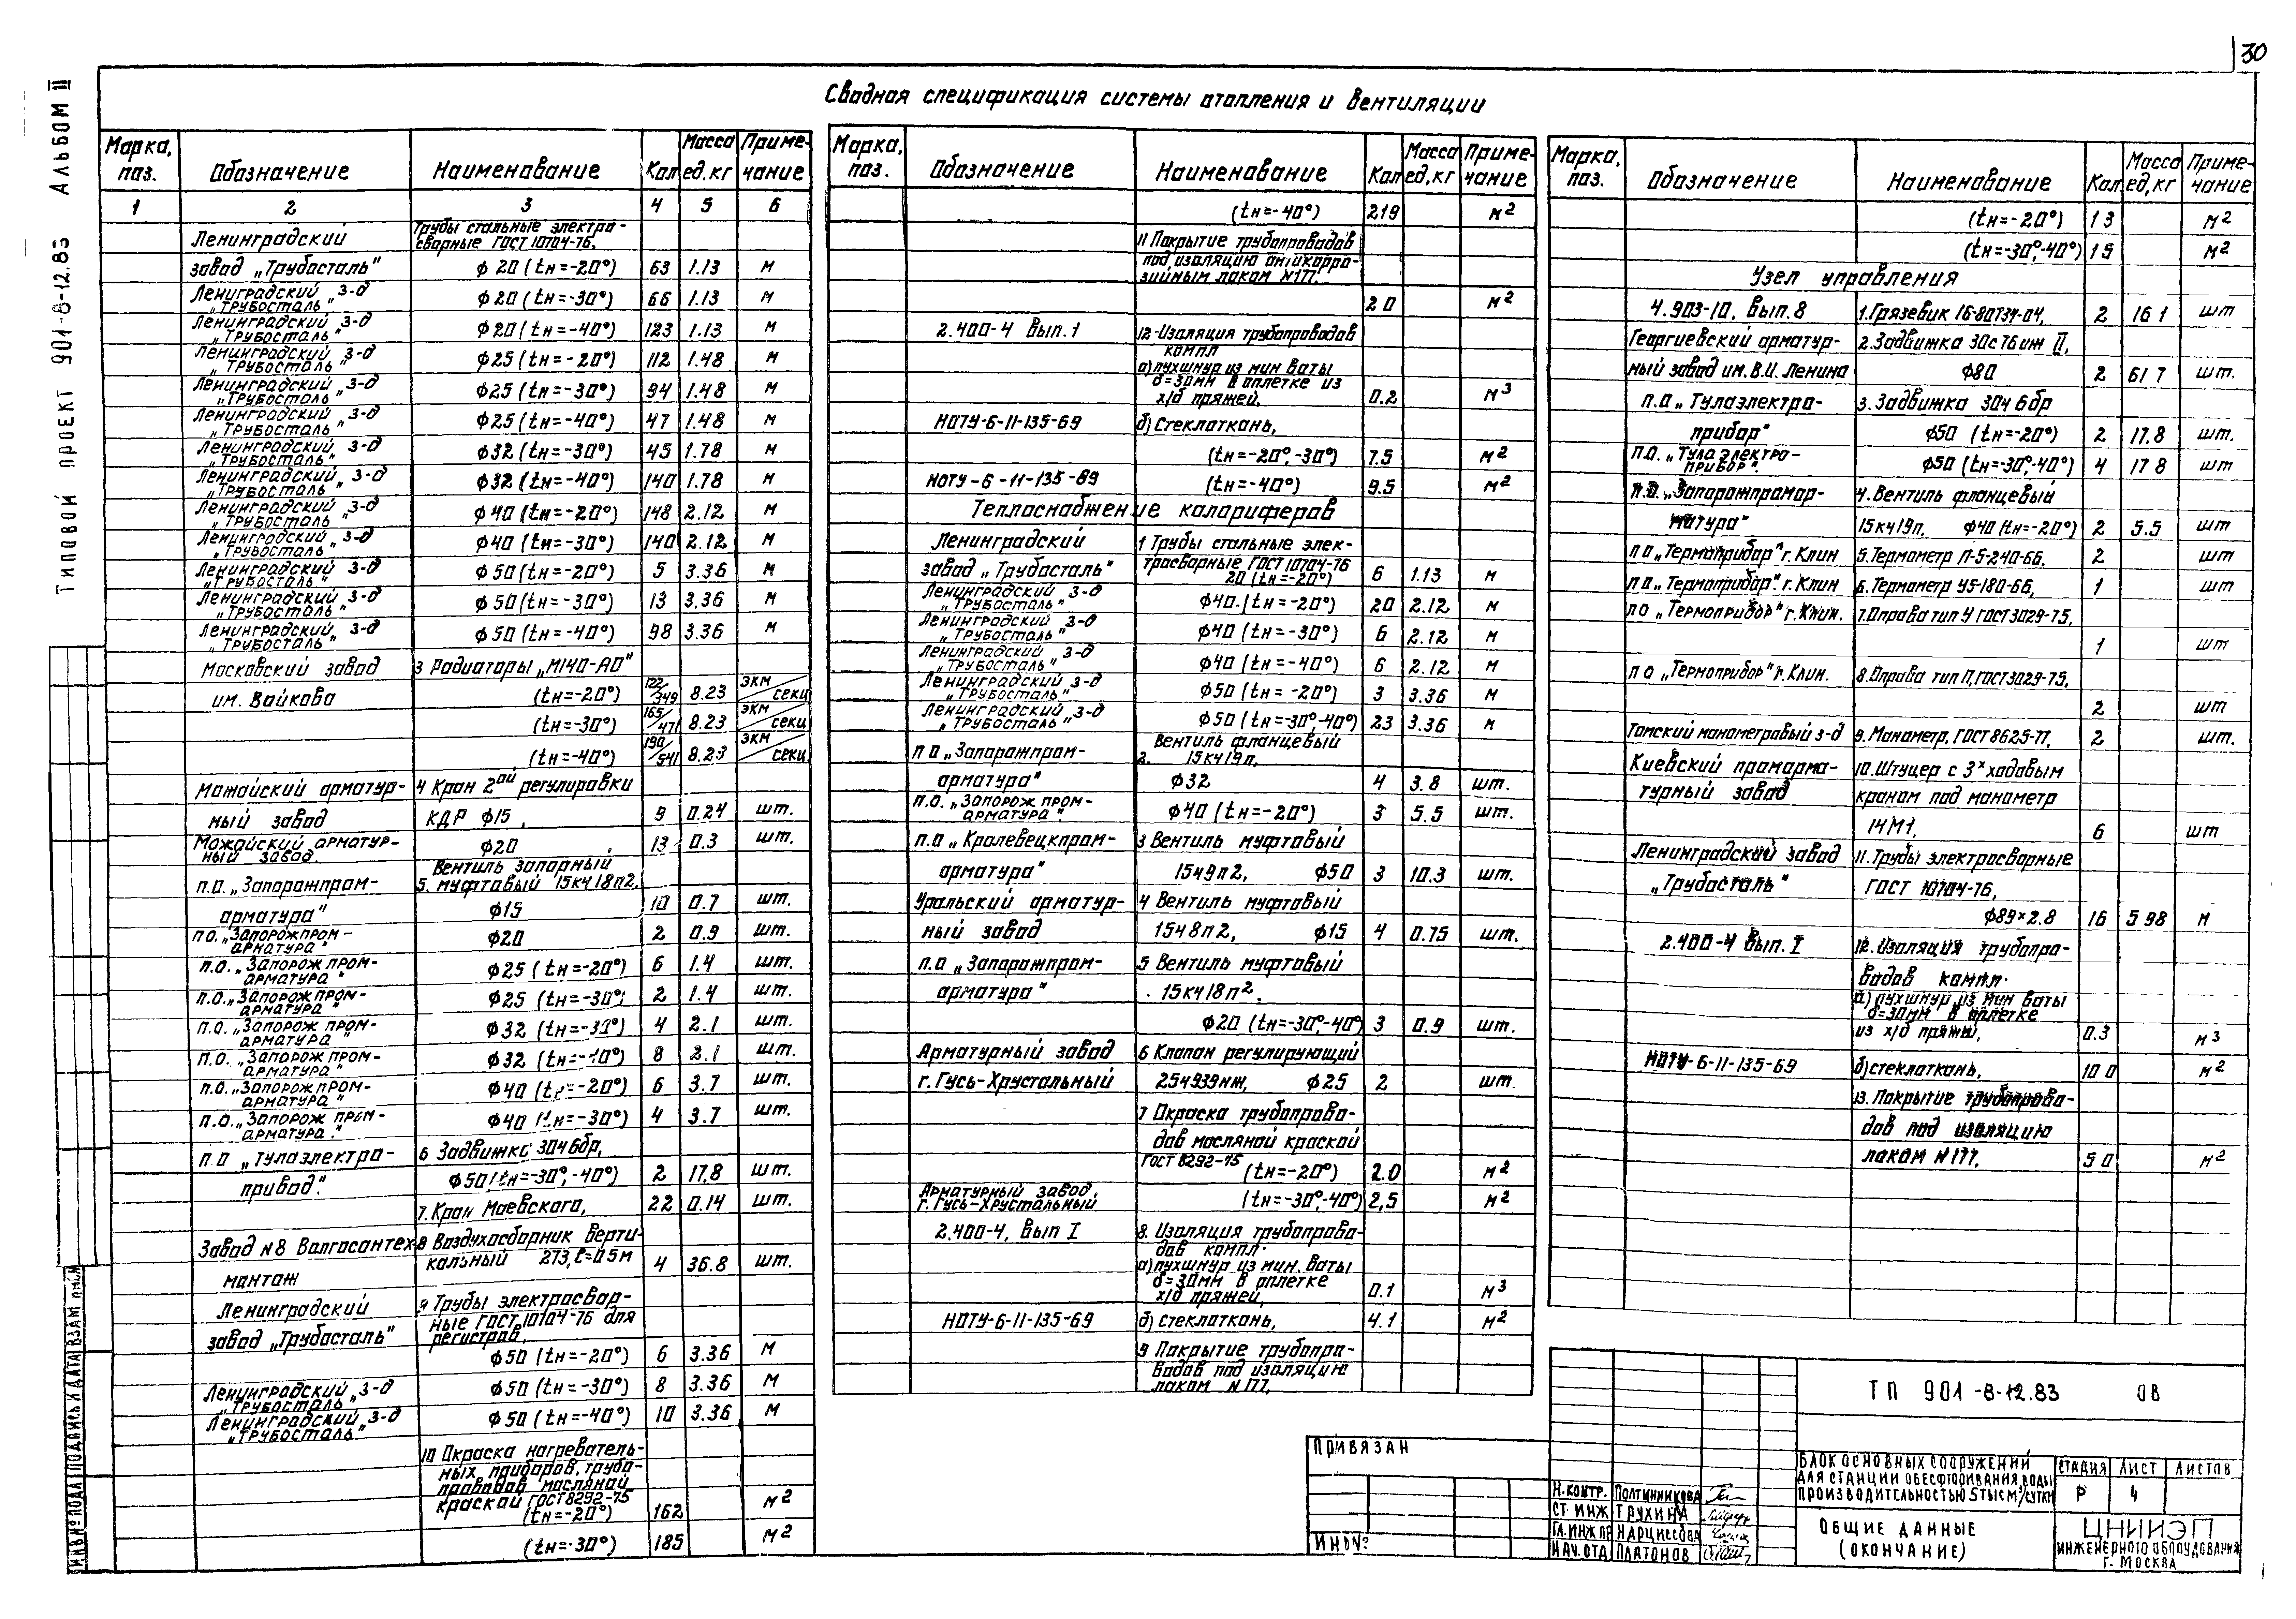 30
Типовой проект 901-8-12.83 Альбом II
Сводная спецификация системы отопления и вентиляции
Марка, поз. Обозначение Наименование Кол Масса ед.кг Примечание
1 2 3 4 5 6
Ленинградский Трубы стальные электро-
сварные ГОСТ 10704-76.
завод „Трубосталь" ф 20 (tн=-20°) 63 1.13 м
Ленинградский з-д „Трубосталь" ф20 (tн=-30°) 66 1.13 м
Ленинградский з-д „Трубосталь" ф20 (tн=-40°) 123 1.13 м
Ленинградский з-д „Трубосталь" ф25 (tн=-20°) 112 1.48 м
Ленинградский з-д „Трубосталь" ф25 (tн=-30°) 94 1.48 м
Ленинградский з-д „Трубосталь" ф25 (tн=-40°) 47 1.48 м
Ленинградский з-д „Трубосталь" ф32 (tн=-30°) 45 1.78 м
Ленинградский з-д „Трубосталь" ф32 (tн=-40°) 140 1.78 м
Ленинградский з-д „Трубосталь" ф40 (tн=-20°) 148 2.12 м
Ленинградский з-д „Трубосталь" ф40 (tн=-30°) 140 2.12 м
Ленинградский з-д „Трубосталь" ф50 (tн=-20°) 5 3.36 м
Ленинградский з-д „Трубосталь" ф50 (tн=-30°) 13 3.36 м
Ленинградский з-д „Трубосталь" ф50 (tн=-40°) 98 3.36 м
Московский завод 3 Радиаторы „М140-АО"
им. Войкова (tн=-20°) 122/349 8.23 экм/секц
(tн=-30°) 165/471 8.23 экм/секц
(tн=-40°) 190/541 8.23 экм/секц
Можайский арматур- 4 Кран 2ой регулировки
ный завод КДР ф15, 9 0.24 шт.
Можайский арматурный завод. ф20 13 0.3 шт.
Вентиль запорный
п.о. „Запорожпром- 5. муфтовый 15кч18п2,
арматура" ф15 10 0.7 шт.
п.о. „Запорожпром-арматура" ф20 2 0.9 шт.
п.о. „Запорожпром-арматура" ф25 (tн=-20°) 6 1.4 шт.
п.о. „Запорожпром-арматура" ф25 (tн=-30°) 2 1.4 шт.
п.о. „Запорожпром-арматура" ф32 (tн=-30°) 4 2.1 шт.
п.о. „Запорожпром-арматура" ф32 (tн=-40°) 8 2.1 шт.
п.о. „Запорожпром-арматура" ф40 (tн=-20°) 6 3.7 шт.
п.о. „Запорожпром-арматура." ф40 (tн=-30°) 4 3.7 шт.
п о „Тулаэлектро- 6 Задвижка 30ч6бр,
привод". ф50 (tн=-30°,-40°) 2 17,8 шт.
7. Кран Маевского, 22 0.14 шт.
Завод №8 Волгосантех- 8 Воздухосборник верти-
монтаж кальный 273, ℓ=0.5м 4 36.8 шт.
Ленинградский 9 Трубы электросвар-
ные ГОСТ 10704-76 для
завод „Трубосталь" регистров,
ф50 (tн=-20°) 6 3.36 м
Ленинградский з-д „Трубосталь" ф50 (tн=-30°) 8 3.36 м
Ленинградский з-д „Трубосталь" ф50 (tн=-40°) 10 3.36 м
10 Окраска нагреватель-
ных приборов, трубо-
проводов масляной
краской ГОСТ 8292-75
(tн=-20°) 162 м²
(tн=-30°) 185 м²
Марка, поз. Обозначение Наименование Кол Масса ед.кг Примечание
(tн=-40°) 219 м²
11 Покрытие трубопроводов
под изоляцию антикорро-
зийным лаком №177.
20 м²
2.400-4 Вып.1 12-Изоляция трубопроводов
компл
а) пухшнур из мин ваты
δ=30мм в оплетке из
х/б пряжей, 0.2 м³
НОТУ-6-11-135-69 б) Стеклоткань,
(tн=-20°,-30°) 7.5 м²
НОТУ-6-11-135-69 (tн=-40°) 9.5 м²
Теплоснабжение калориферов
Ленинградский 1 Трубы стальные элек-
завод „Трубосталь" тросварные ГОСТ 10704-76
20 (tн=-20°) 6 1.13 м
Ленинградский з-д „Трубосталь" ф40 (tн=-20°) 20 2.12 м
Ленинградский з-д „Трубосталь" ф40 (tн=-30°) 6 2.12 м
Ленинградский з-д „Трубосталь" ф40 (tн=-40°) 6 2.12 м
Ленинградский з-д „Трубосталь" ф50 (tн=-20°) 3 3.36 м
Ленинградский з-д „Трубосталь" ф50 (tн=-30°,-40°) 23 3.36 м
п о „Запорожпром- Вентиль фланцевый
2. 15кч19п,
арматура" ф32 4 3.8 шт.
п.о. „Запорожпром-арматура" ф40 (tн=-20°) 3 5.5 шт.
п.о „Кролевецкпром- 3 Вентиль муфтовый
арматура" 15ч9п2, ф50 3 10.3 шт.
Уральский арматур- 4 Вентиль муфтовый
ный завод 15ч8п2, ф15 4 0.75 шт.
п.о „Запорожпром- 5 Вентиль муфтовый
арматура" 15кч18п2.
ф20 (tн=-30°,-40°) 3 0.9 шт.
Арматурный завод 6 Клапан регулирующий
г. Гусь-Хрустальный 25ч939нж, ф25 2 шт.
7 Окраска трубопрово-
дов масляной краской
ГОСТ 8292-75 (tн=-20°) 2.0 м²
Арматурный завод, г. Гусь-Хрустальный (tн=-30°,-40°) 2,5 м²
2.400-4, Вып I 8. Изоляция трубопрово-
дов компл.
а) пухшнур из мин. ваты
δ=30мм в оплетке
х/б пряжей, 0.1 м³
НОТУ-6-11-135-69 б) Стеклоткань, 4.1 м²
9 Покрытие трубопро-
водов под изоляцию
лаком №177,
Марка, поз. Обозначение Наименование Кол Масса ед,кг Примечание
(tн=-20°) 13 м²
(tн=-30°,-40°) 15 м²
Узел управления
4.903-10, Вып.8 1. Грязевик 16-80Т34-04, 2 16 1 шт
Георгиевский арматур- 2. Задвижка 30с76нж II,
ный завод им. В.И. Ленина ф80 2 61 7 шт.
п.о „Тулаэлектро- 3. Задвижка 30ч 6бр
прибор" ф50 (tн=-20°) 2 17.8 шт.
п.о. „Тулаэлектро-прибор". ф50 (tн=-30°,-40°) 4 17 8 шт
п.о. „Запорожпромар- 4. Вентиль фланцевый
матура" 15кч19п, ф40 (tн=-20°) 2 5.5 шт
п о „Термоприбор" г. Клин 5. Термометр П-5-240-66, 2 шт
п о „Термоприбор" г. Клин 6. Термометр У5-180-66, 1 шт
п о „Термоприбор" г. Клин. 7. Оправа тип У ГОСТ 3029-75,
1 шт
п о „Термоприбор" г. Клин. 8. Оправа тип П, ГОСТ 3029-75,
2 шт
Томский манометровый з-д 9. Манометр, ГОСТ 8625-77, 2 шт.
Киевский промарма- 10. Штуцер с 3х ходовым
турный завод краном под манометр
14М1, 6 шт
Ленинградский завод 11. Трубы электросварные
„Трубосталь" ГОСТ 10704-76,
ф89×2.8 16 5 98 м
2.400-4 Вып. I 12. Изоляция трубопро-
водов компл.
а) пухшнур из мин ваты
δ=30мм в оплетке
из х/б пряжи, 0.3 м³
НОТУ-6-11-135-69 б) стеклоткань, 10 0 м²
13. Покрытие трубопрово-
дов под изоляцию
лаком №177, 5 0 м²
Привязан
Инв№
ТП 901-8-12.83 ОВ
Блок основных сооружений
для станции обесфторивания воды
производительностью 5 тыс м³/сутки
Стадия Лист Листов
Р 4
Н.контр. Полтинникова
Ст. инж Трухина
Гл. инж пр Нарциссова
Нач. отд Платонов
Общие данные
(окончание)
ЦНИИЭП
инженерного оборудования
г. Москва
Инв № подл Подпись и дата Взам инв №